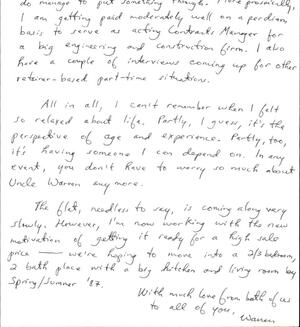 do manage to put something though. More prosaically,
I am getting paid moderately well on a per diem
basis to serve as acting Contracts Manager for
a big engineering and construction firm. I also
have a couple of interviews coming up for other
retainer-based part-time situations.
All in all, I can't remember when I felt
so relaxed about life. Partly, I guess, it's the
perspective of age and experience. Partly, too,
it's having someone I can depend on. In any
event, you don't have to worry so much about
Uncle Warren any more.
The flat, needless to say, is coming along very
slowly. However, I'm now working with the new
motivation of getting it ready for a high sale
price — we're hoping to move into a 2/3 bedroom,
2 bath place with a big kitchen and living room by
Spring/Summer '87.
With much love from both of us
to all of you,
Warren